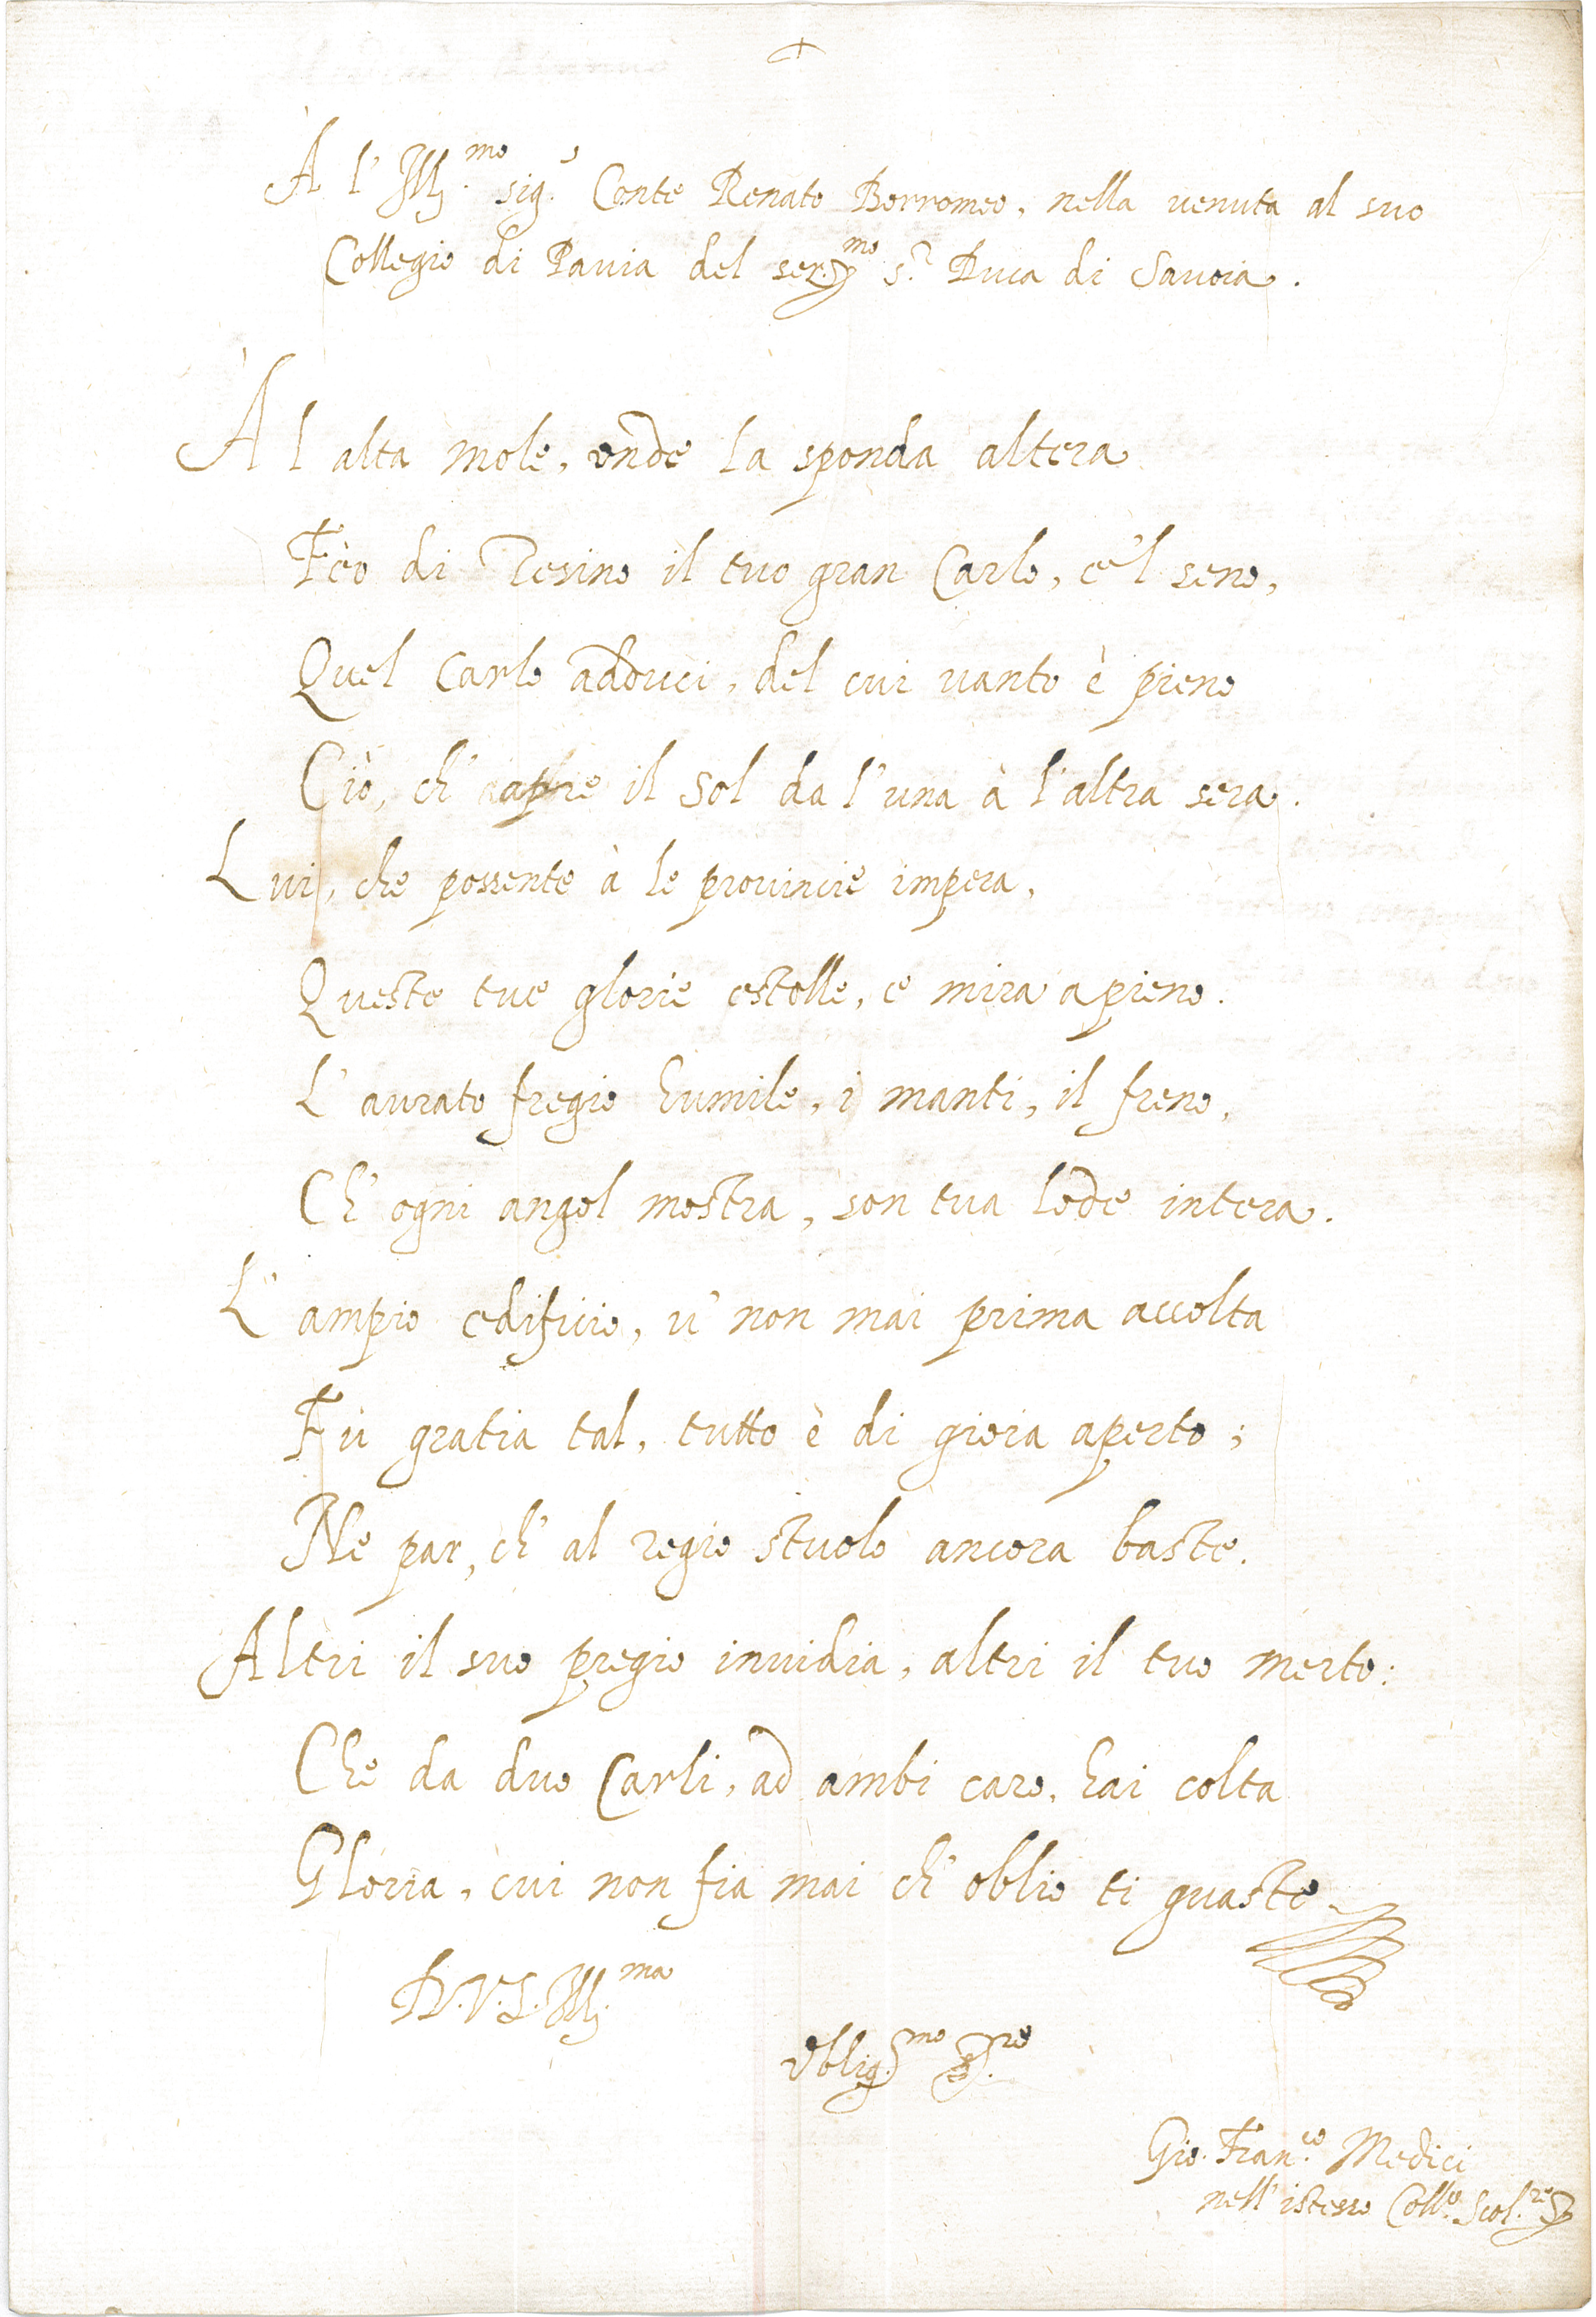 A l' Ill.mo sig.r Conte Renato Borromeo, nella uenuta al suo
Collegio di Pauia del ser.mo s.r Duca di Sauoia.
Al alta mole, onde la sponda altera
Fèo di Tesino il tuo gran Carlo, e'l seno,
Quel Carlo adduci, del cui uanto è pieno
Ciò, ch' apre il Sol da l'una à l'altra sera.
Lui, che possente à le prouincie impera,
Queste tue glorie estolle, e mira apieno.
L' aurato fregio humile, i manti, il freno,
Ch' ogni angol mostra, son tua lode intera.
L' ampio edificio, u' non mai prima accolta
Fù gratia tal, tutto è di gioia aperto;
Ne par, ch' al regio stuolo ancora baste.
Altri il suo pregio inuidia, altri il tuo merto:
Che da duo Carli, ad ambi caro, hai colta
Gloria, cui non fia mai ch' oblio ti guaste
D.V.S.Ill.ma
Oblig.mo S.re
Gio. Fran.co Medici
nell' istesso Coll.o Scol.re